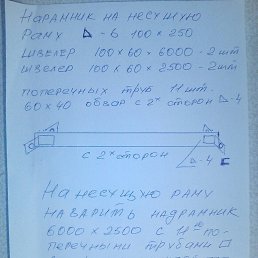 НАРАННИК НА НЕСУЩУЮ
РАМУ Δ-6 100 х 250
ШВЕЛЕР 100 х 60 х 6000 - 2 шт
ШВЕЛЕР 100 х 60 х 2500 - 2 шт
ПОПЕРЕЧНЫХ ТРУБ 11 шт.
60 х 40 ОБВАР С 2х СТОРОН Δ-4
С 2х СТОРОН
Δ-4
НА НЕСУЩУЮ РАМУ
НАВАРИТЬ НАДРАННИК
6000 х 2500 С 11ю ПО-
ПЕРЕЧНЫМИ ТРУБАМИ □